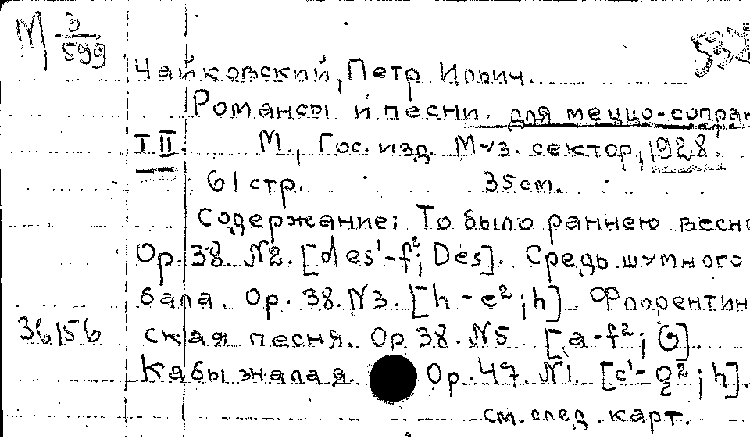 М 3/599
Чайковский, Петр Ильич.
Романсы и песни. для меццо-сопран
Т II. М., Гос. изд. Муз. сектор, 1928.
61 стр. 35 см.
Содержание: То было раннею весно
Ор. 38. №2. [des¹-f²; Des]. Средь шумного
бала. Ор. 38. №3. [h-e²; h]. Флорентин
36156 ская песня. Ор 38. №5 [a-f²; G].
Кабы знала я. Ор. 47. №1. [c¹-g²; h].
см. след. карт.